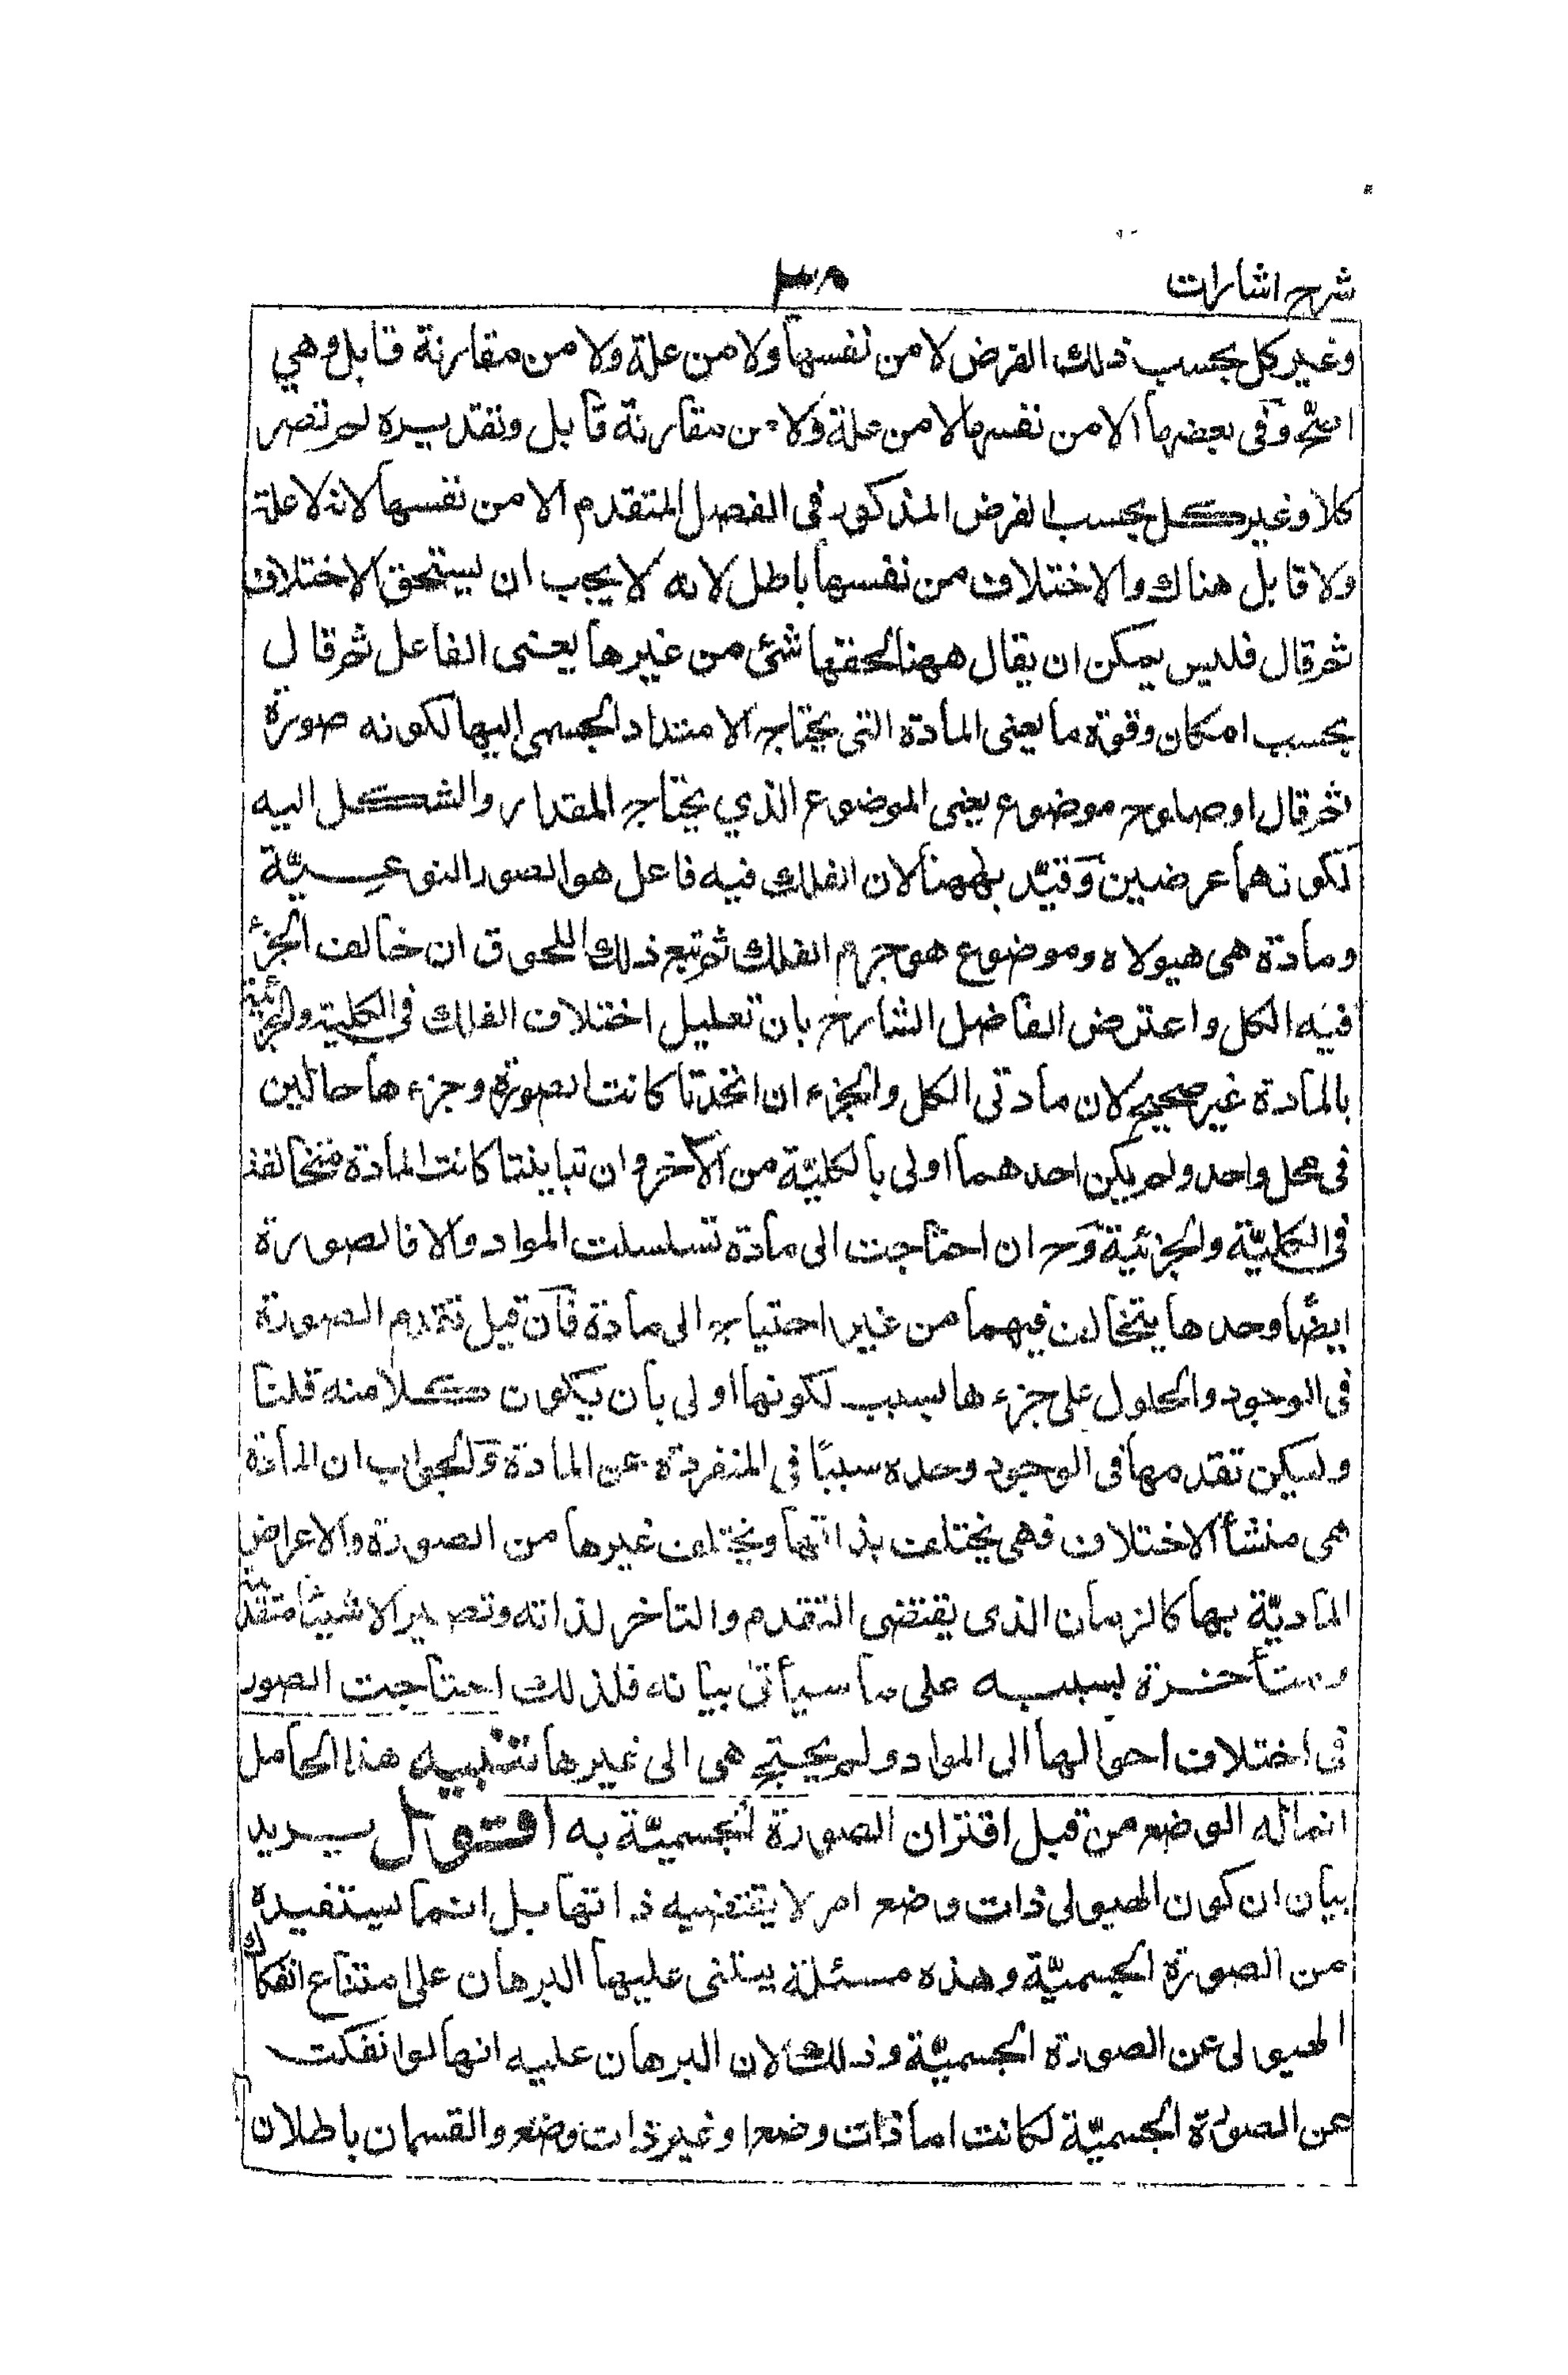 شرح اشارات
٣٨
وغير كل بحسب ذلك الفرض لا من نفسها ولا من علة ولا من مقارنة قابل وهي
اصح وفى بعضها الا من نفسها لا من علة ولا من مقارنة قابل وتقديره لم تصر
كلا وغير كل بحسب الفرض المذكور فى الفصل المتقدم الا من نفسها لانه لا علة
ولا قابل هناك والاختلاف من نفسها باطل لانه لا يجب ان يستحق الاختلاف
ثم قال فليس يمكن ان يقال ههنا لحقها شئ من غيرها يعنى الفاعل ثم قال
بحسب امكان وقوة ما يعنى المادة التى يحتاج الامتداد الجسمى اليها لكونه صورة
ثم قال او صلوح موضوع يعنى الموضوع الذي يحتاج المقدار والشكل اليه
لكونهما عرضين وقيد بههنا لان الفلك فيه فاعل هو الصور النوعيّة
ومادة هى هيولاه وموضوع هو جرم الفلك ثم تبع ذلك اللحوق ان خالف الجزء
فيه الكل واعترض الفاضل الشارح بان تعليل اختلاف الفلك فى الكلية والجزئية
بالمادة غير صحيح لان مادتى الكل والجزء ان اتحدتا كانت الصورة وجزءها حالين
فى محل واحد ولم يكن احدهما اولى بالكليّة من الآخر وان تباينتا كانت المادة متخالفة
فى الكليّة والجزئية وح ان احتاجت الى مادة تسلسلت المواد والا فالصورة
ايضًا وحدها يتخالف فيهما من غير احتياج الى مادة فان قيل تقدم الصورة
فى الوجود والحلول على جزءها بسبب لكونها اولى بان يكون كلا منه قلنا
وليكن تقدمها فى الوجود وحده سببًا فى المنفردة عن المادة والجواب ان المادة
هى منشأ الاختلاف فهى يختلف بذاتها ويختلف غيرها من الصورة والاعراض
الماديّة بها كالزمان الذى يقتضى التقدم والتاخر لذاته وتصير الاشياء متقدمة
ومتأخرة بسببه على ما سيأتى بيانه فلذلك احتاجت الصور
فى اختلاف احوالها الى المواد ولم يحتج هى الى غيرها تنبيه هذا الحامل
انما له الوضع من قبل اقتران الصورة الجسميّة به اقول يريد
بيان ان كون الهيولى ذات وضع امر لا يقتضيه ذاتها بل انما يستفيده
من الصورة الجسميّة وهذه مسئلة يبتنى عليها البرهان على امتناع انفكاك
الهيولى عن الصورة الجسميّة وذلك لان البرهان عليه انها لو انفكت
عن الصورة الجسميّة لكانت اما ذات وضع او غير ذات وضع والقسمان باطلان